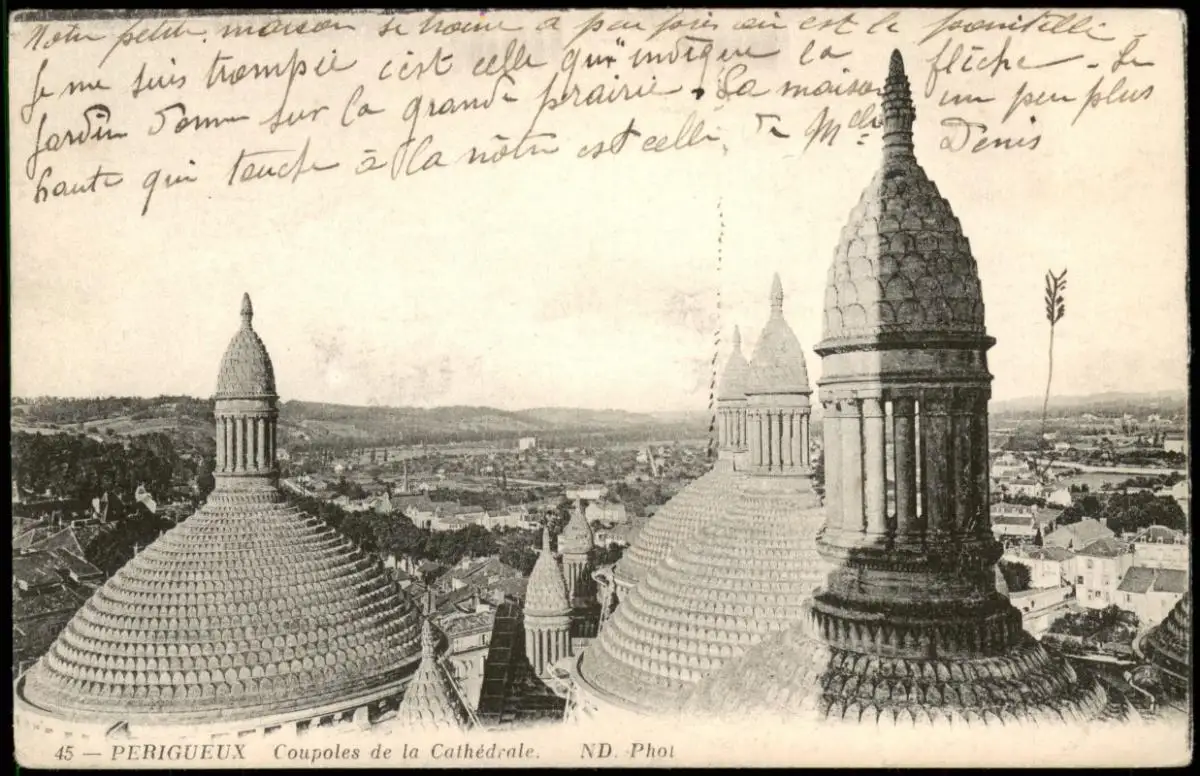 Notre petite maison se trouve à peu près où est le pointillé.
Je me suis trompée c'est celle qu'indique la flèche - Le
jardin donne sur la grande prairie. La maison un peu plus
haute qui touche à la nôtre est celle de Mlle Denis
45 — PERIGUEUX Coupoles de la Cathédrale. ND. Phot